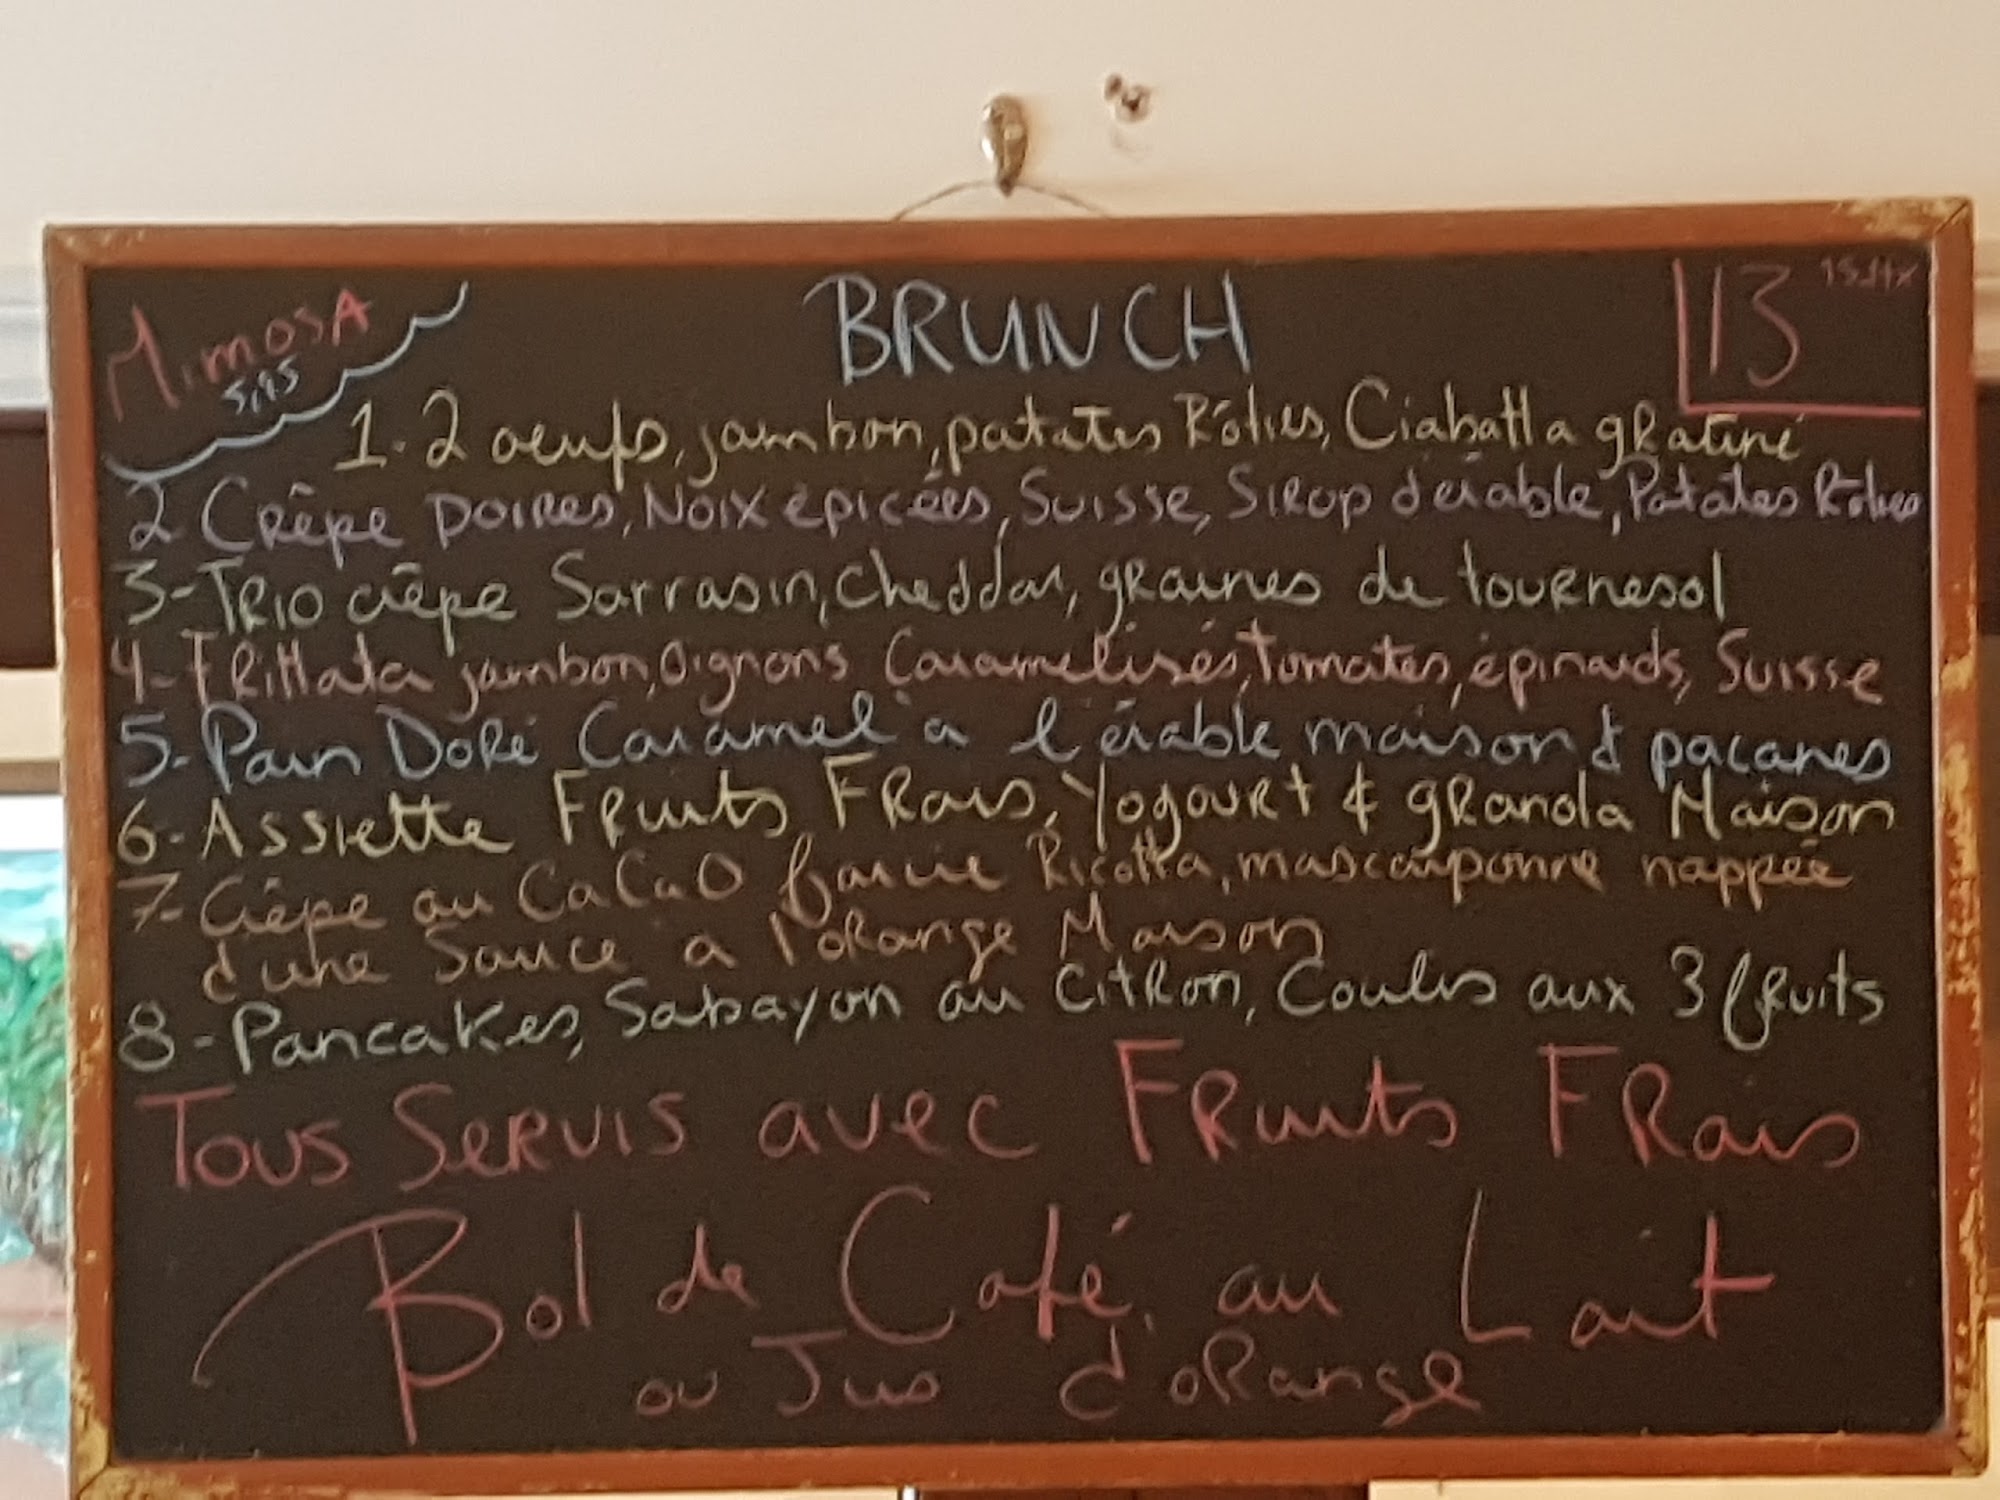 MimosA
5,95
BRUNCH
13
15.+tx
1.2 oeufs, jambon, patates Rôties, Ciabatta gRatiné
2 Crêpe poiRes, Noix épicées, Suisse, SiRop d'érable, Patates Rôties
3-TRIO crêpe Sarrasin, cheddar, gRaines de touRnesol
4-FRittata jambon, Oignons Caramelisés, Tomates, épinards, Suisse
5-Pain DoRé Caramel à l'érable maison & pacanes
6-Assiette FRuits FRais, YogouRt & gRanola Maison
7-Crêpe au CaCaO farcie Ricotta, mascarponne nappée
d'une Sauce à l'oRange Maison
8-Pancakes, Sabayon au CitRon, Coulis aux 3 fRuits
Tous SeRvis avec FRuits FRais
Bol de Café au Lait
ou Jus d'oRange